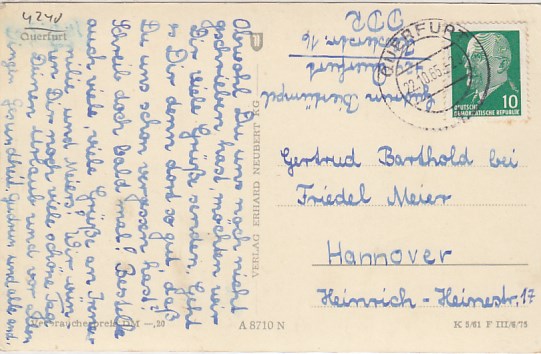 4240
Querfurt
Obwohl Du uns noch nicht
geschrieben hast, möchten wir
Dir viele Grüße senden. Geht
es Dir denn dort so gut, daß
Du uns schon vergessen hast?
Schreib doch bald mal! Bestelle
auch viele, viele Grüße an Deine
Familie und Meiers! Wir wün
Dir noch viele schöne Tage
Urlaub und vor allen
Dingen Gesundheit.
Verbraucherpreis DM —,20
VERLAG ERHARD NEUBERT KG
A 8710 N
DDR
16
Querfurt
QUERFURT
22.10.65
10
DEUTSCHE
DEMOKRATISCHE REPUBLIK
Gertrud Barthold bei
Friedel Meier
Hannover
Heinrich-Heinestr. 17
K 5/61 F III/6/75